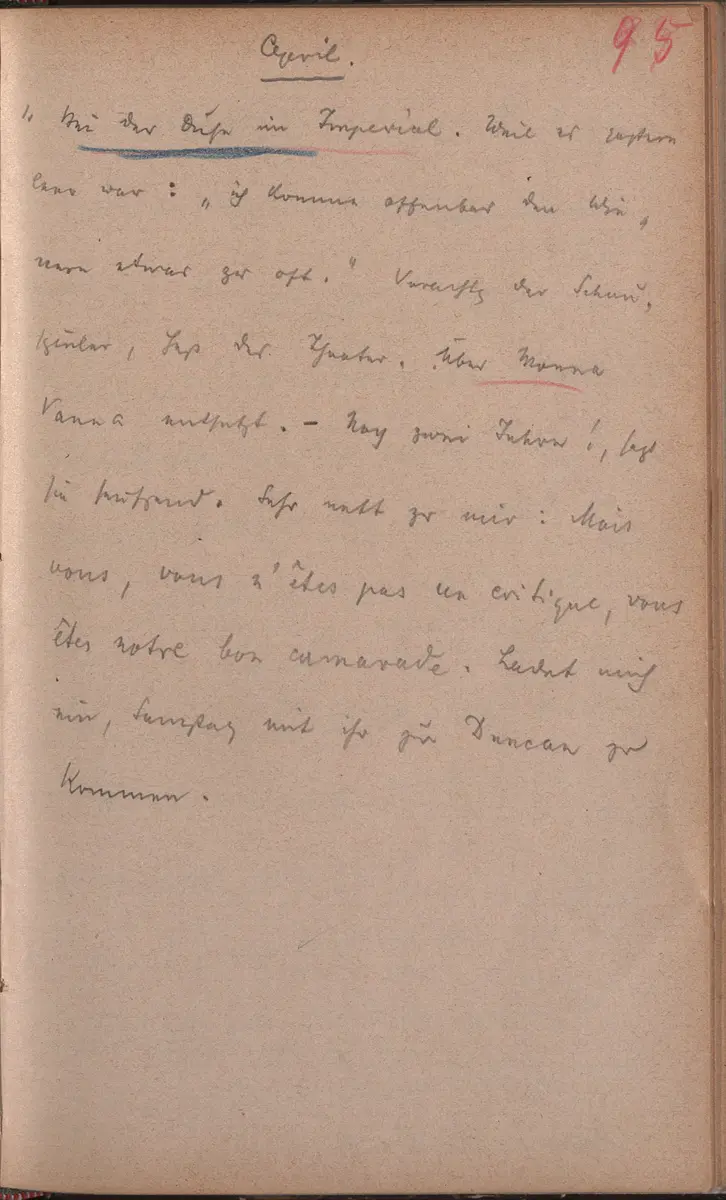 April.
95
1. Bei der Duse im Imperial. Weil es gestern
leer war: „ich komme offenbar den Wie„
nern etwas zu oft.“ Verachtg der Schau„
spieler, Haß des Theater. Über Monna
Vanna entsetzt. – Noch zwei Jahre!, sagt
sie seufzend. Sehr nett zu mir: Mais
vous, vous n'êtes pas un critique, vous
êtes notre bon camarade. Ladet mich
ein, Samstag mit ihr zur Duncan zu
kommen.